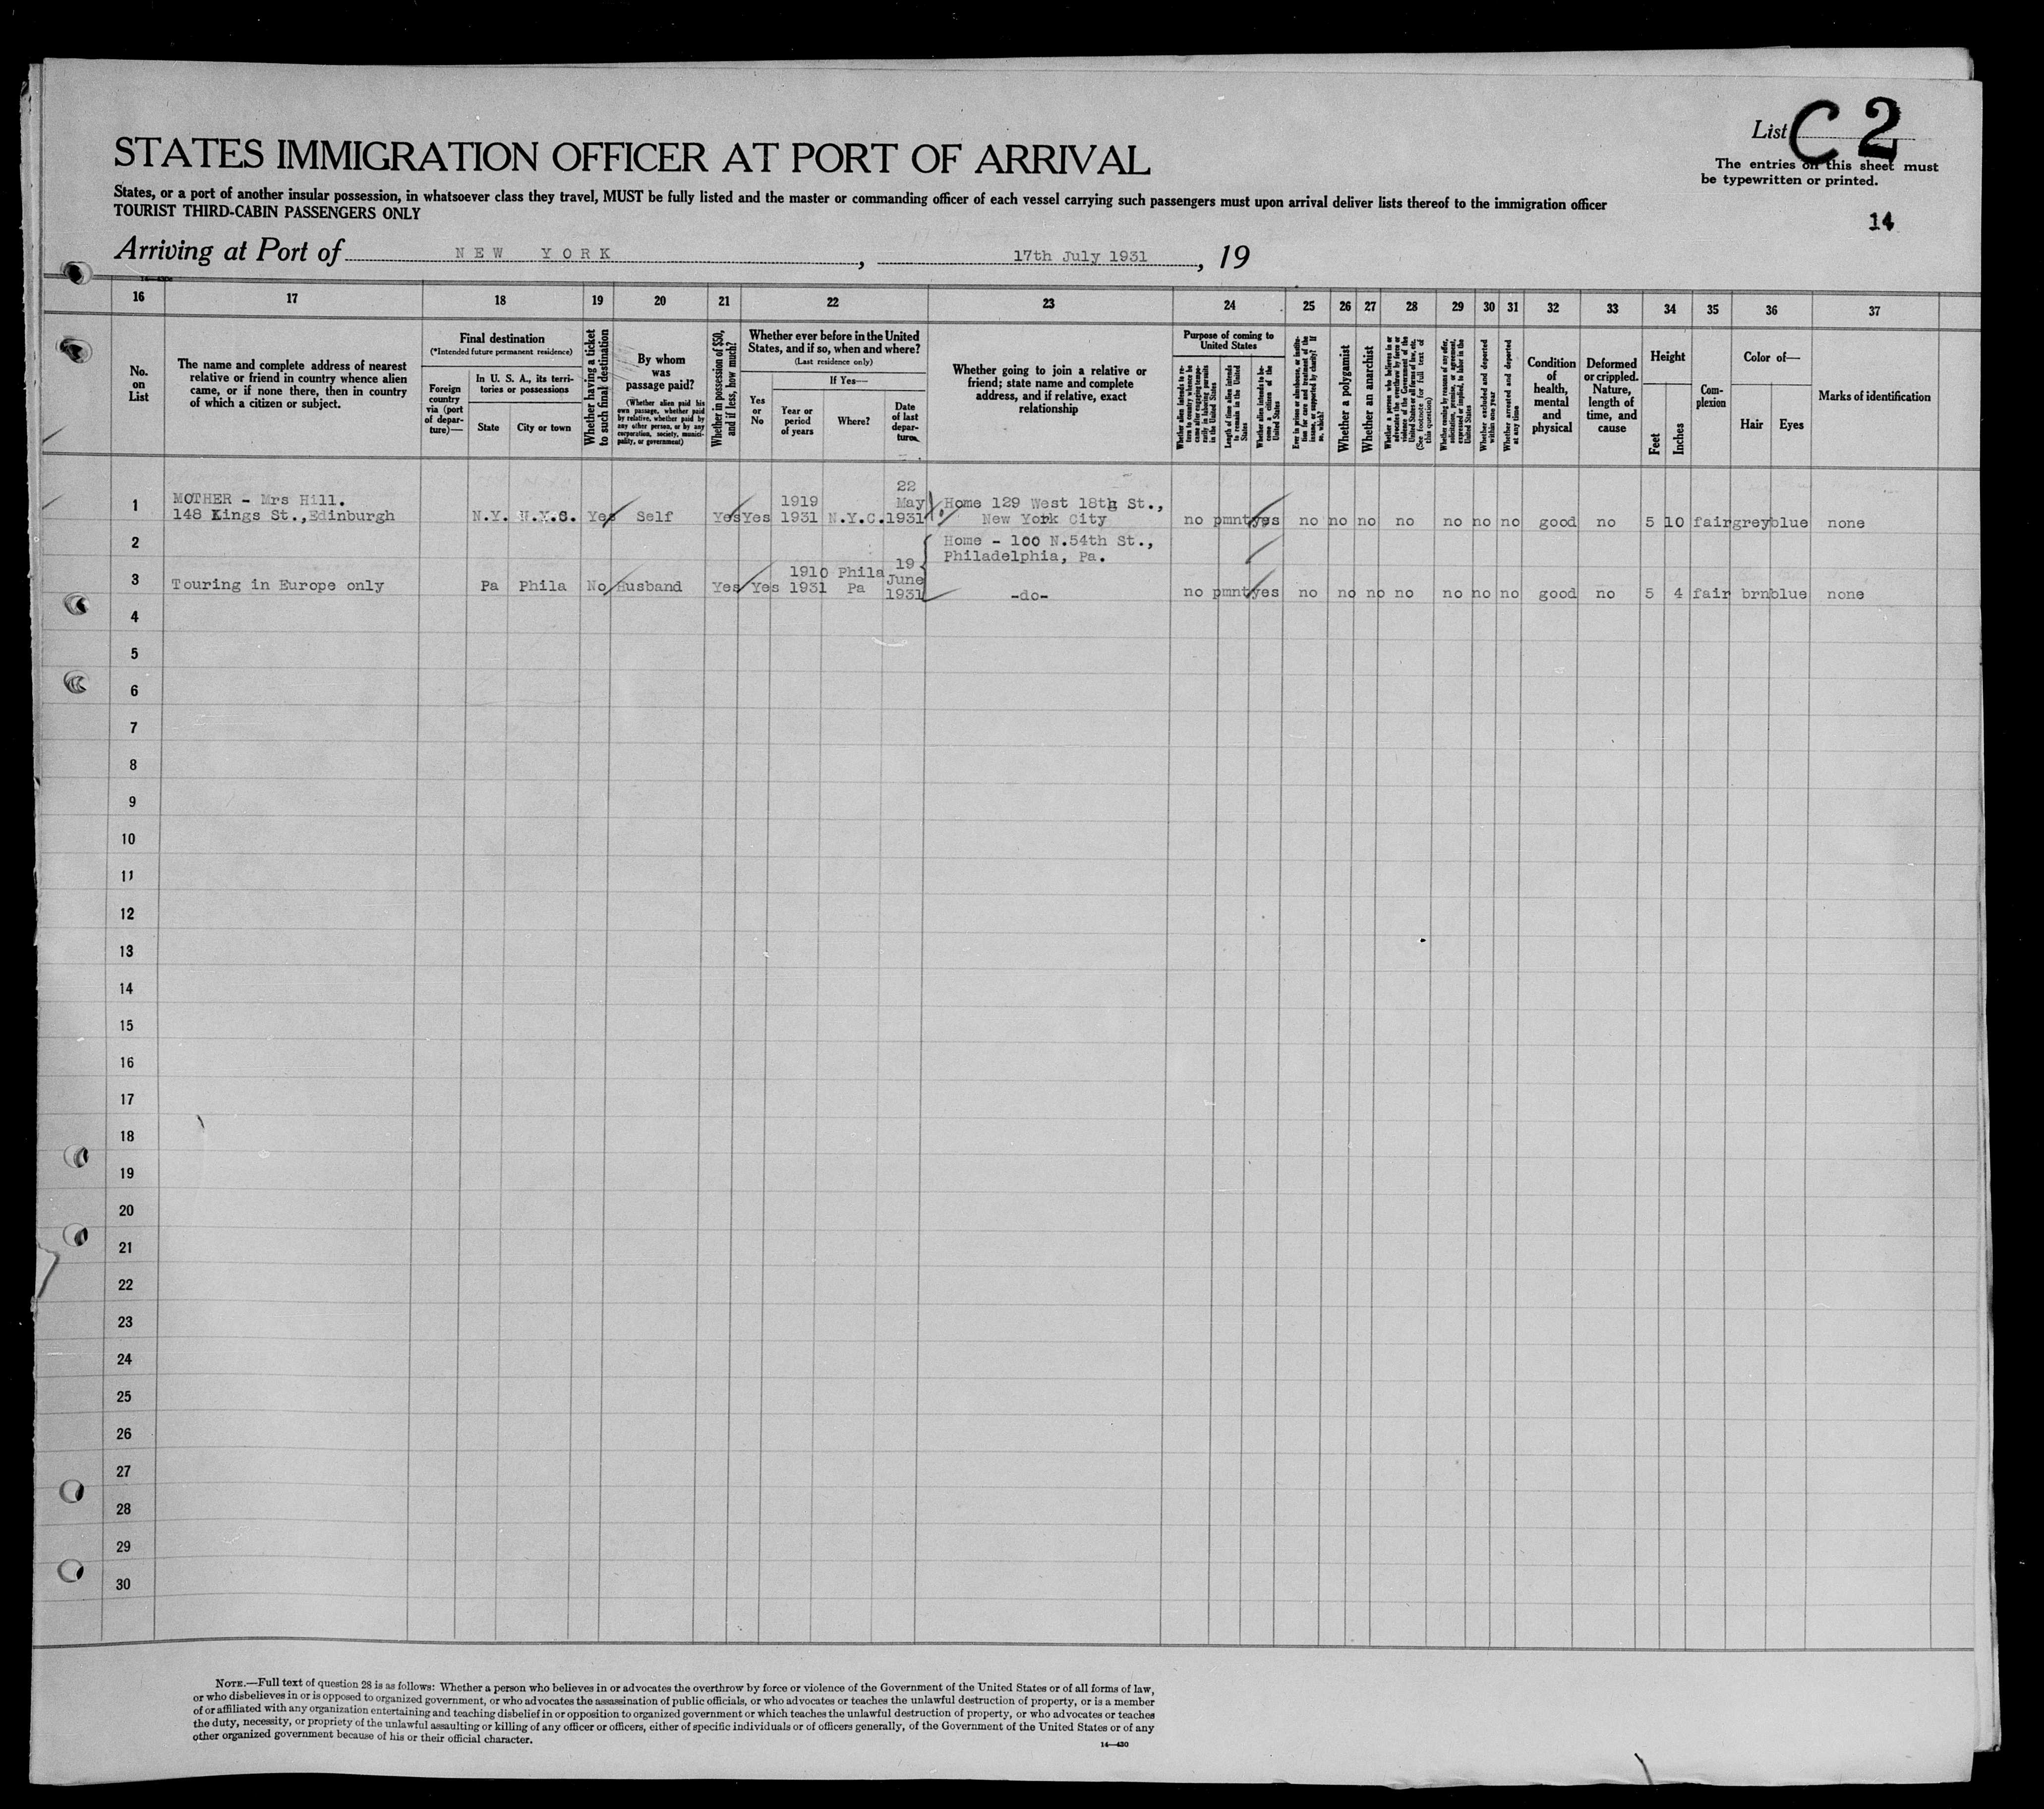 List C 2
The entries on this sheet must
be typewritten or printed.
14
STATES IMMIGRATION OFFICER AT PORT OF ARRIVAL
States, or a port of another insular possession, in whatsoever class they travel, MUST be fully listed and the master or commanding officer of each vessel carrying such passengers must upon arrival deliver lists thereof to the immigration officer
TOURIST THIRD-CABIN PASSENGERS ONLY
Arriving at Port of NEW YORK, 17th July 1931, 19
16 17 18 19 20 21 22 23 24 25 26 27 28 29 30 31 32 33 34 35 36 37
No.
on
List
The name and complete address of nearest
relative or friend in country whence alien
came, or if none there, then in country
of which a citizen or subject.
Final destination
(*Intended future permanent residence)
Foreign
country
via (port
of depar-
ture)—
In U. S. A., its terri-
tories or possessions
State
City or town
Whether having a ticket
to such final destination
By whom
was
passage paid?
(Whether alien paid his
own passage, whether paid
by relative, whether paid by
any other person, or by any
corporation, society, munici-
pality, or government)
Whether in possession of $50,
and if less, how much?
Whether ever before in the United
States, and if so, when and where?
(Last residence only)
Yes
or
No
If Yes—
Year or
period
of years
Where?
Date
of last
depar-
ture
Whether going to join a relative or
friend; state name and complete
address, and if relative, exact
relationship
Purpose of coming to
United States
Whether alien intends to re-
turn to country whence he
came after engaging tempo-
rarily in laboring pursuits
in the United States
Length of time alien intends
to remain in the United
States
Whether alien intends to be-
come a citizen of the
United States
Ever in prison or almshouse, or institu-
tion for care and treatment of the
insane, or supported by charity? If
so, which?
Whether a polygamist
Whether an anarchist
Whether a person who believes in or
advocates the overthrow by force or
violence of the Government of the
United States or all forms of law, etc.
(See footnote for full text of
this question)
Whether coming by reason of any offer,
solicitation, promise, or agreement,
expressed or implied, to labor in the
United States
Whether excluded and deported
within one year
Whether arrested and deported
at any time
Condition
of
health,
mental
and
physical
Deformed
or crippled.
Nature,
length of
time, and
cause
Height
Feet
Inches
Com-
plexion
Color of—
Hair
Eyes
Marks of identification
1 MOTHER - Mrs Hill.
148 Kings St.,Edinburgh N.Y. N.Y.S. Yes Self Yes Yes 1919 1931 N.Y.C. 22 May 1931 Home 129 West 18th St.,
New York City no pmnt yes no no no no no no no good no 5 10 fair grey blue none
2 Home - 100 N.54th St.,
Philadelphia, Pa.
3 Touring in Europe only Pa Phila No Husband Yes Yes 1910 1931 Phila Pa 19 June 1931 -do- no pmnt yes no no no no no no no good no 5 4 fair brn blue none
4
5
6
7
8
9
10
11
12
13
14
15
16
17
18
19
20
21
22
23
24
25
26
27
28
29
30
NOTE.—Full text of question 28 is as follows: Whether a person who believes in or advocates the overthrow by force or violence of the Government of the United States or of all forms of law,
or who disbelieves in or is opposed to organized government, or who advocates the assassination of public officials, or who advocates or teaches the unlawful destruction of property, or is a member
of or affiliated with any organization entertaining and teaching disbelief in or opposition to organized government or which teaches the unlawful destruction of property, or who advocates or teaches
the duty, necessity, or propriety of the unlawful assaulting or killing of any officer or officers, either of specific individuals or of officers generally, of the Government of the United States or of any
other organized government because of his or their official character.
14—430